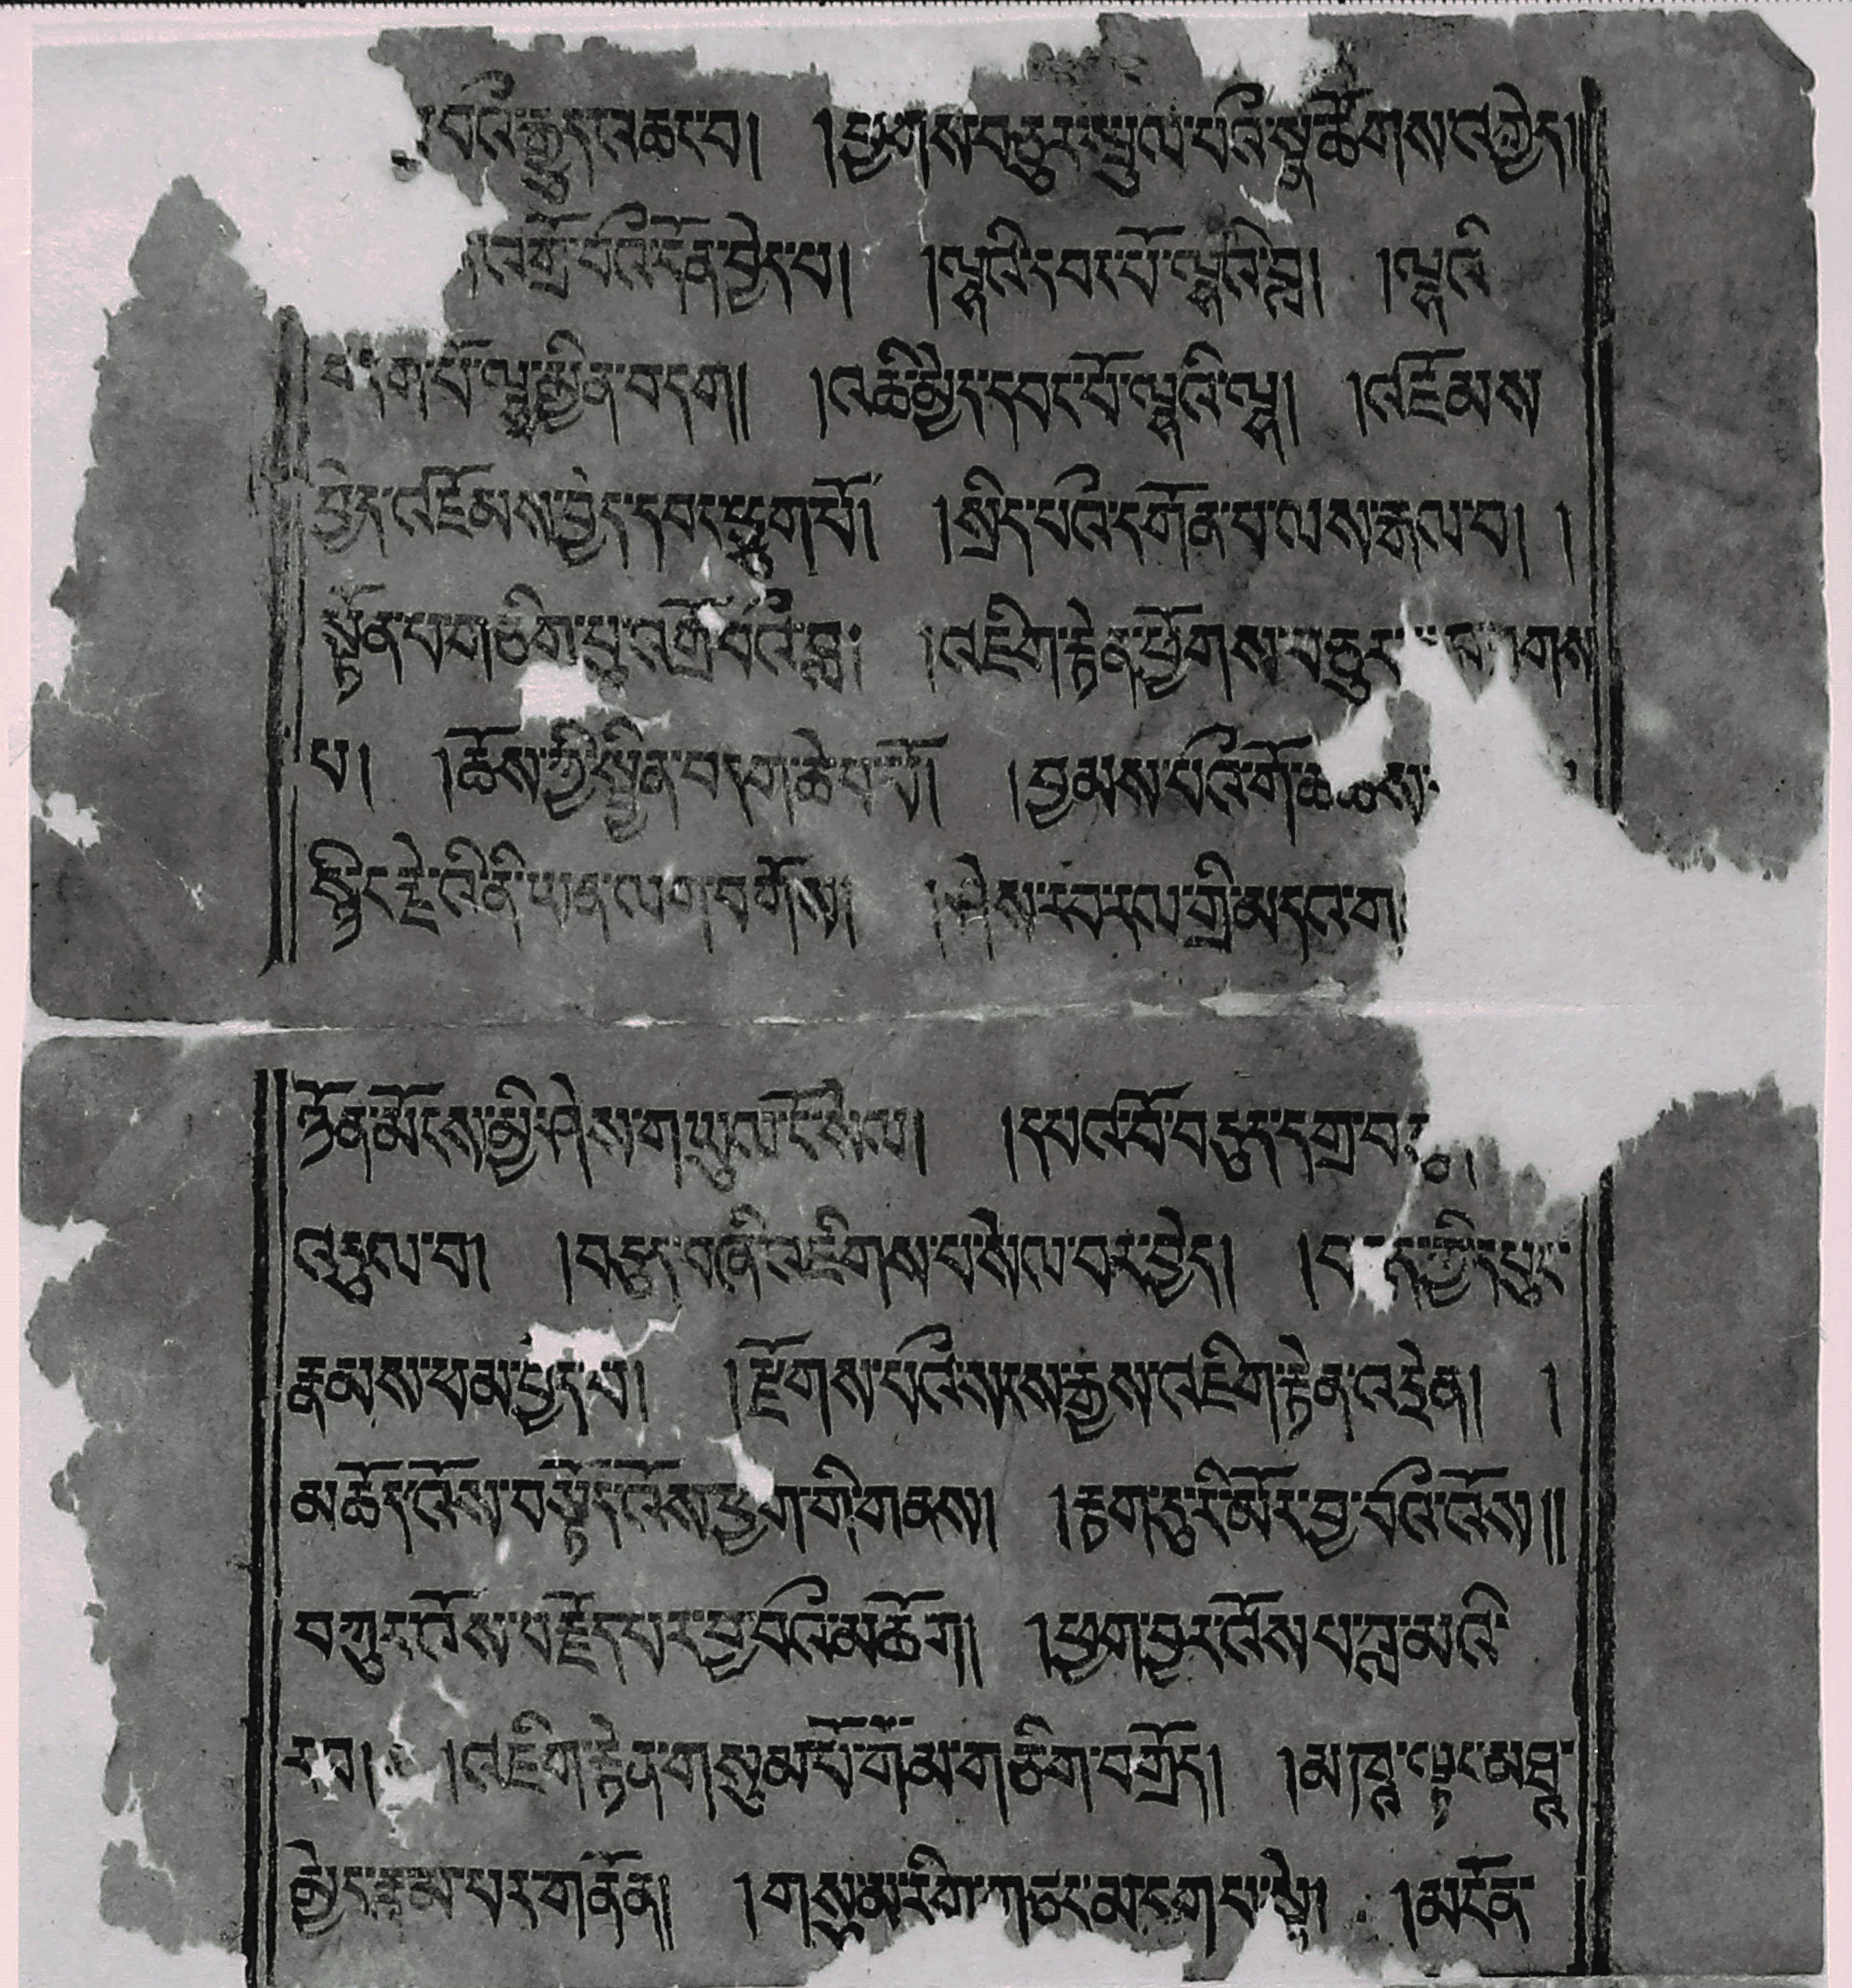 བའི་རྒྱུད་འཆང་བ། །ཕྱོགས་བཅུར་སྤྲུལ་པའི་སྣ་ཚོགས་འགྱེད།།
འགྲོ་བའི་དོན་བྱེད་པ། །ལྷའི་དབང་པོ་ལྷའི་བླ། །ལྷའི
བདག་པོ་ལྷ་མྱིན་བདག། །འཆི་མྱེད་དབང་པོ་ལྷའི་ལྷ། །འཇོམས
བྱེད་འཇོམས་བྱེད་དབང་ཕྱུག་པོ། །སྲིད་པའི་དགོན་པ་ལས་རྒལ་བ། །
སྟོན་པ་གཅིག་པུ་འགྲོ་བའི་བླ། །འཇིག་རྟེན་ཕྱོགས་བཅུར་ གས
པ། །ཆོས་ཀྱི་སྦྱིན་བདག་ཆེན་པོ། །བྱམས་པའི་གོ་ཆ་ཆས་
སྙིང་རྗེ་འི་ནི་ཡན་ལག་བགོས། །ཤེས་རབ་རལ་གྲི་མདའ་ག
ཉོན་མོངས་མྱི་ཤེས་གཡུལ་ངོ་སེལ། །དཔའ་བོ་བདུད་དགྲ་བ
འདུལ་བ། །བདུད་བཞི་འཇིགས་པ་སེལ་བར་བྱེད། །བདུད་ཀྱི་དཔུང་
རྣམས་ཕམ་བྱེད་པ། །རྫོགས་པའི་སངས་རྒྱས་འཇིག་རྟེན་འདྲེན། །
མཆོད་འོས་བསྟོད་འོས་ཕྱག་གི་གནས། །རྟག་དུ་རི་མོར་བྱ་བའི་འོས།།
བཀུར་འོས་བརྗོད་པར་བྱ་བའི་མཆོག། །ཕྱག་བྱར་འོས་པ་བླ་མའི་
རབ། །འཇིག་རྟེན་གསུམ་པོ་གོམ་གཅིག་བགྲོད། །མཁའ་ལྟར་མཐའ་
མྱེད་རྣམ་པར་གནོན། །གསུམ་རིག་གཙང་མ་དག་པ་སྟེ། །མངོན་